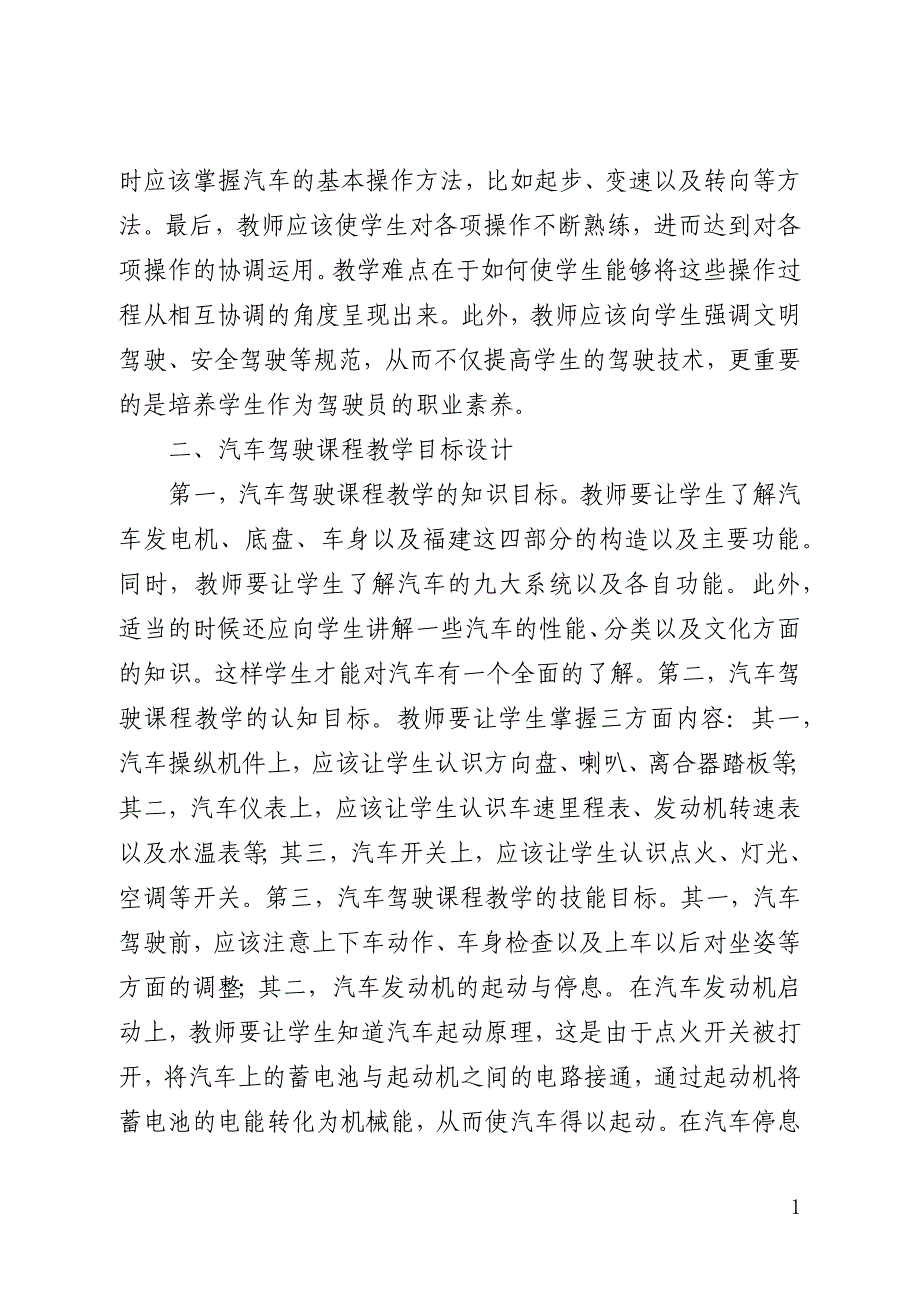 时应该掌握汽车的基本操作方法，比如起步、变速以及转向等方
法。最后，教师应该使学生对各项操作不断熟练，进而达到对各
项操作的协调运用。教学难点在于如何使学生能够将这些操作过
程从相互协调的角度呈现出来。此外，教师应该向学生强调文明
驾驶、安全驾驶等规范，从而不仅提高学生的驾驶技术，更重要
的是培养学生作为驾驶员的职业素养。
二、汽车驾驶课程教学目标设计
第一，汽车驾驶课程教学的知识目标。教师要让学生了解汽
车发电机、底盘、车身以及福建这四部分的构造以及主要功能。
同时，教师要让学生了解汽车的九大系统以及各自功能。此外，
适当的时候还应向学生讲解一些汽车的性能、分类以及文化方面
的知识。这样学生才能对汽车有一个全面的了解。第二，汽车驾
驶课程教学的认知目标。教师要让学生掌握三方面内容：其一，
汽车操纵机件上，应该让学生认识方向盘、喇叭、离合器踏板等；
其二，汽车仪表上，应该让学生认识车速里程表、发动机转速表
以及水温表等；其三，汽车开关上，应该让学生认识点火、灯光、
空调等开关。第三，汽车驾驶课程教学的技能目标。其一，汽车
驾驶前，应该注意上下车动作、车身检查以及上车以后对坐姿等
方面的调整；其二，汽车发动机的起动与停息。在汽车发动机启
动上，教师要让学生知道汽车起动原理，这是由于点火开关被打
开，将汽车上的蓄电池与起动机之间的电路接通，通过起动机将
蓄电池的电能转化为机械能，从而使汽车得以起动。在汽车停息
1